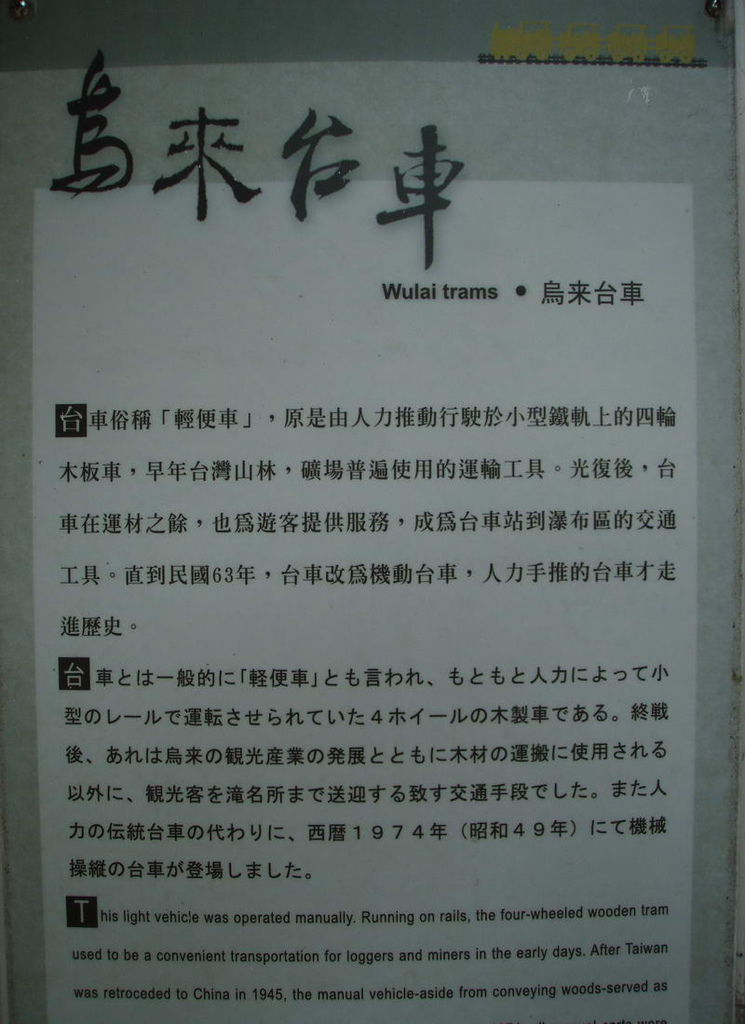 烏來台車
Wulai trams • 烏来台車
台車俗稱「輕便車」，原是由人力推動行駛於小型鐵軌上的四輪
木板車，早年台灣山林，礦場普遍使用的運輸工具。光復後，台
車在運材之餘，也爲遊客提供服務，成爲台車站到瀑布區的交通
工具。直到民國63年，台車改爲機動台車，人力手推的台車才走
進歷史。
台車とは一般的に「軽便車」とも言われ、もともと人力によって小
型のレールで運転させられていた４ホイールの木製車である。終戦
後、あれは烏来の観光産業の発展とともに木材の運搬に使用される
以外に、観光客を滝名所まで送迎する致す交通手段でした。また人
力の伝統台車の代わりに、西暦１９７４年（昭和４９年）にて機械
操縦の台車が登場しました。
This light vehicle was operated manually. Running on rails, the four-wheeled wooden tram
used to be a convenient transportation for loggers and miners in the early days. After Taiwan
was retroceded to China in 1945, the manual vehicle-aside from conveying woods-served as